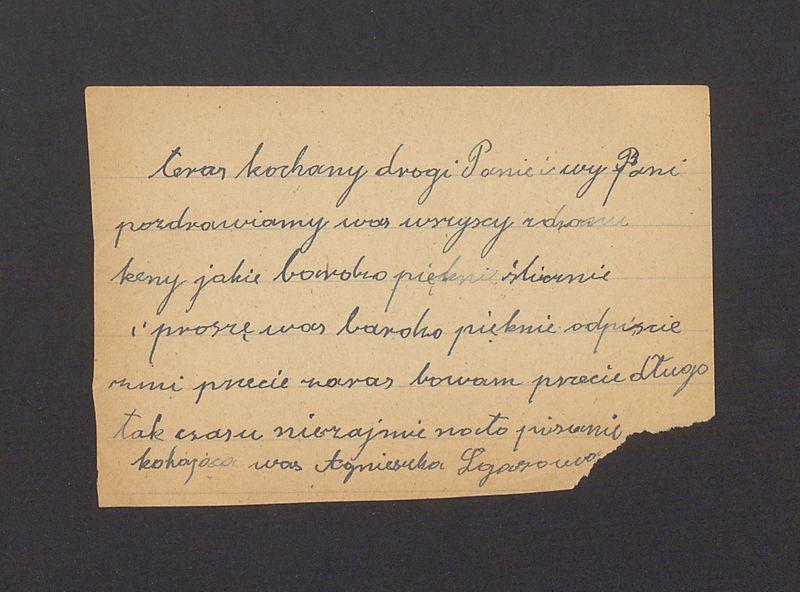 teras kochany drogi Panie i wy Pani
pozdrawiamy was wszyscy
keny jakie bardzo pięknie ślicznie
i proszę was bardzo pięknie odpiscie
mi precie zaras bowam przecie długo
tak czasu niezajmie nato pisanie
kohająca was Agnieszka